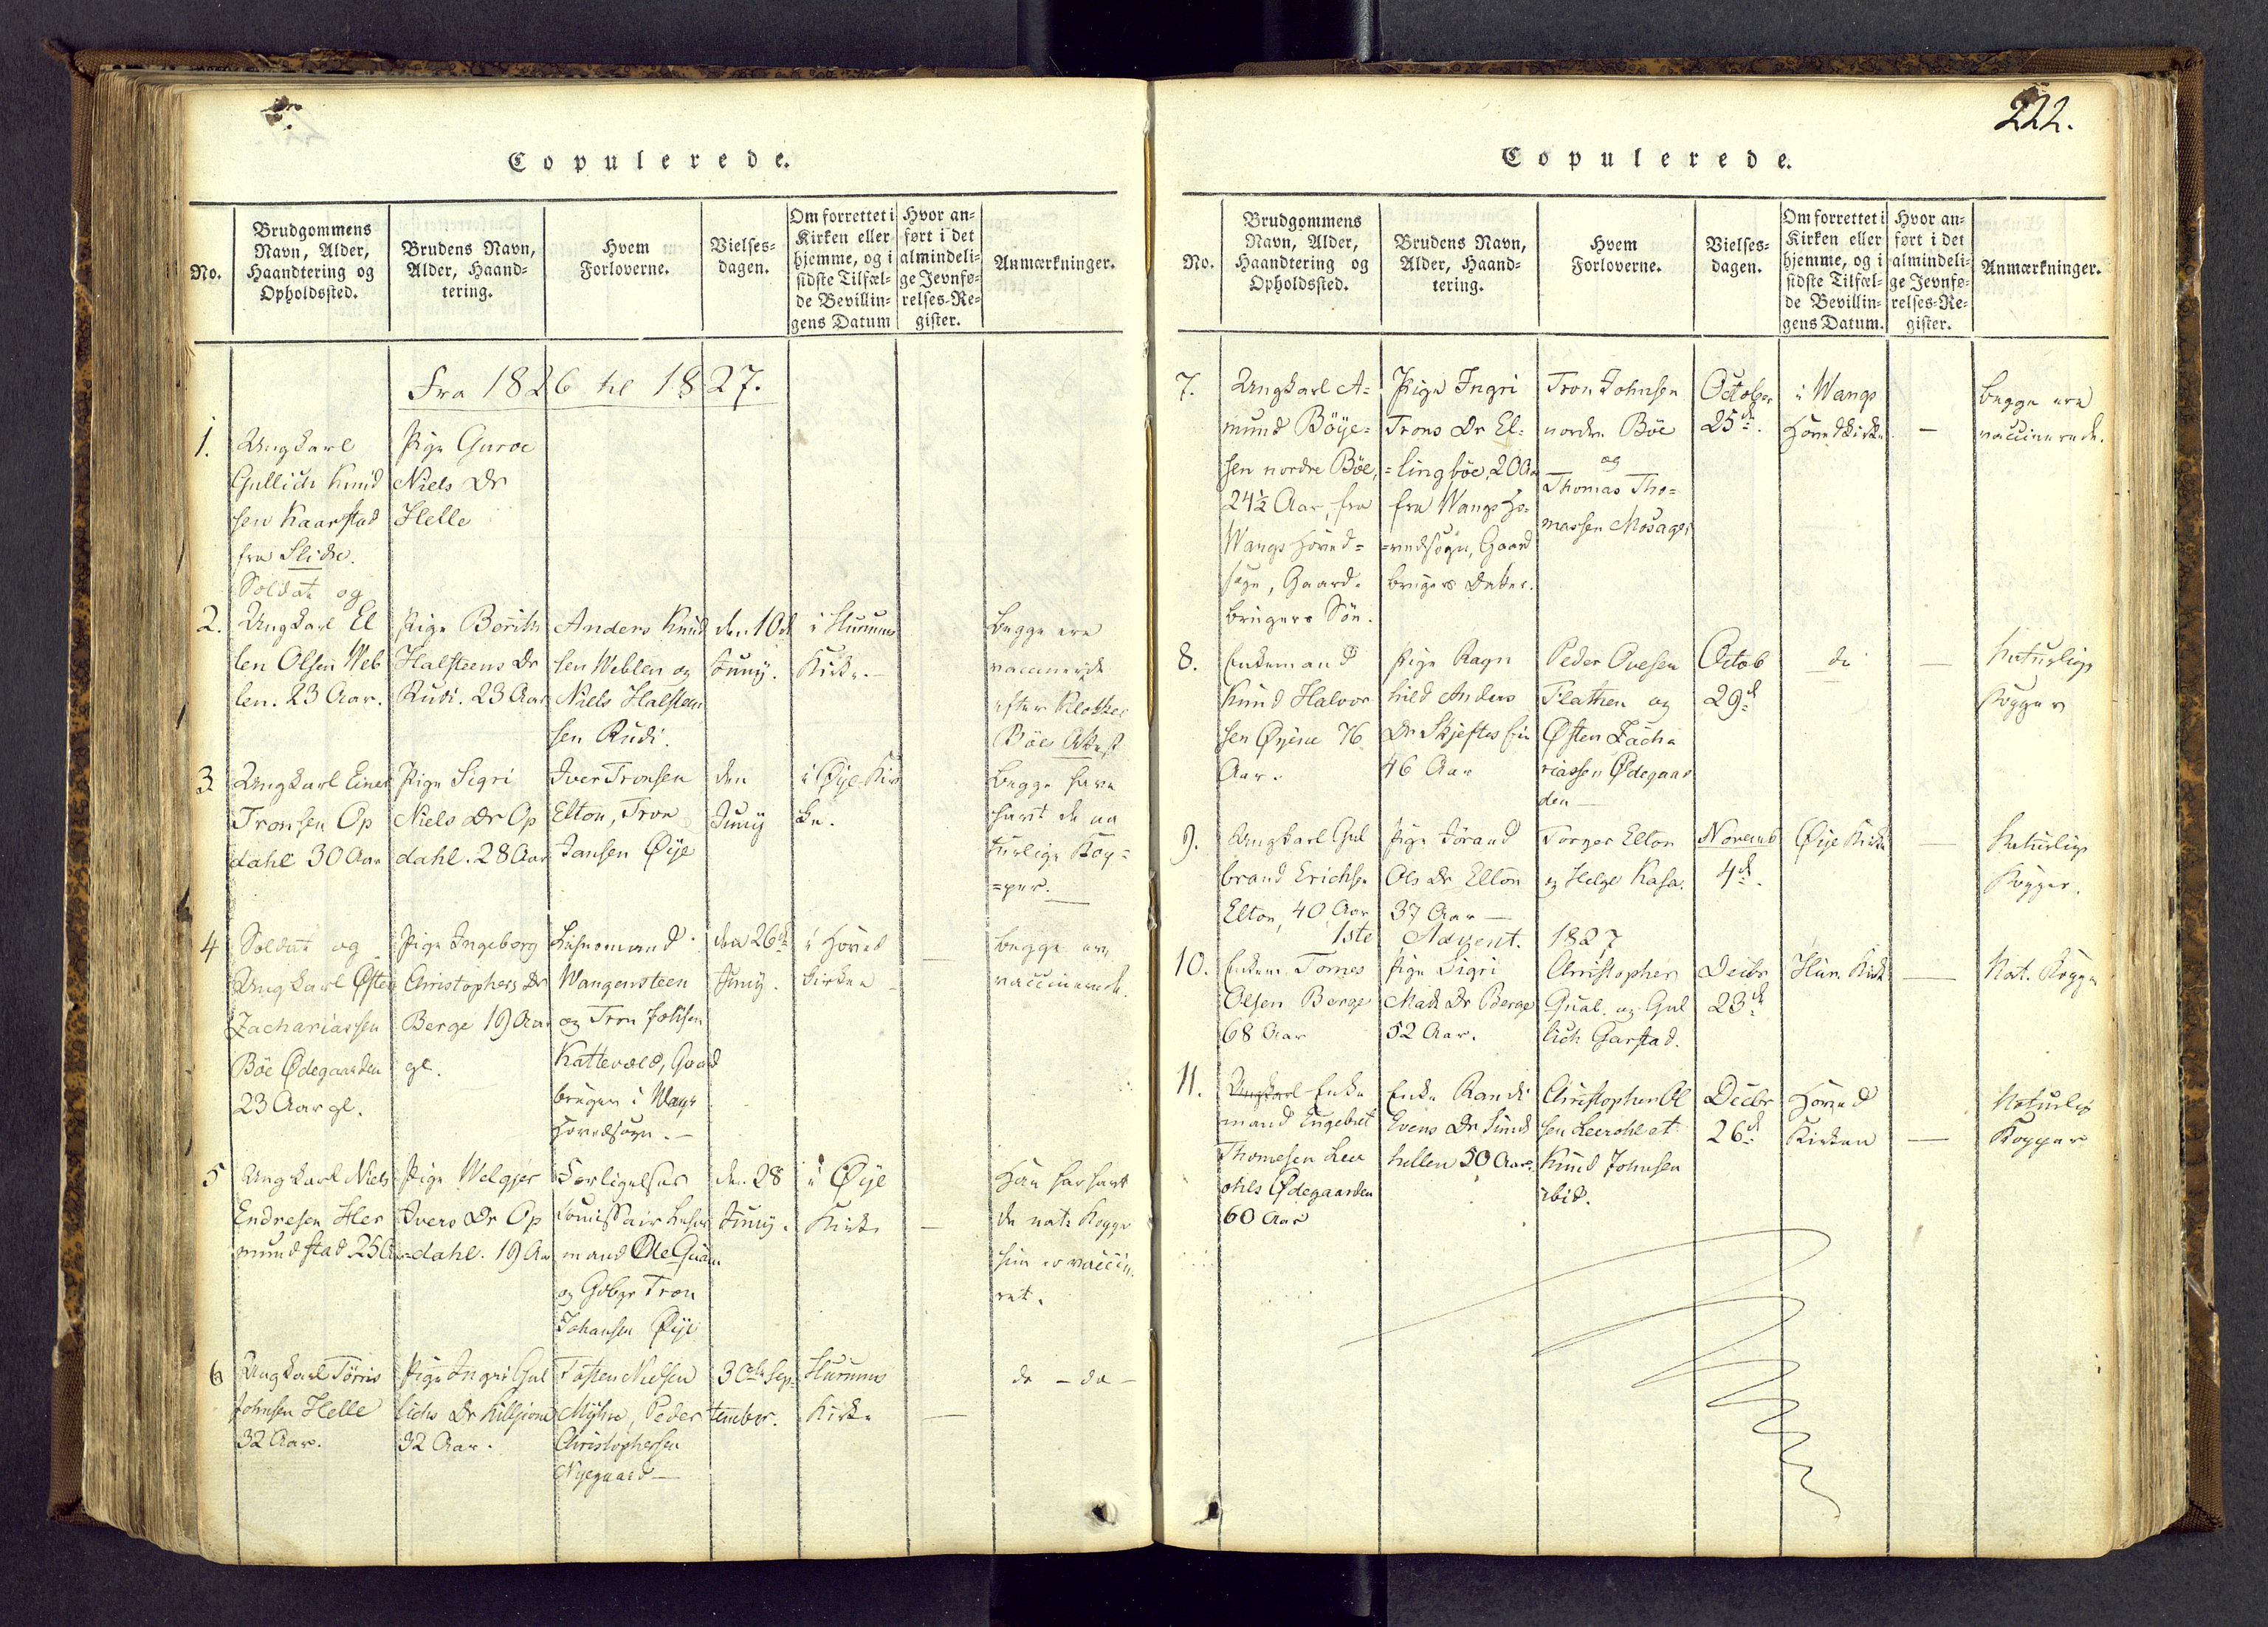 Copulerede.
No.
Brudgommens
Navn, Alder,
Haandtering og
Opholdssted.
Brudens Navn,
Alder, Haand-
tering.
Hvem
Forloverne.
Vielses-
dagen.
Om forrettet i
Kirken eller
hjemme, og i
sidste Tilfæl-
de Bevillin-
gens Datum
Hvor an-
ført i det
almindeli-
ge Jevnfø-
relses-Re-
gister.
Anmærkninger.
Fra 1826 til 1827.
1.
Ungkarl
Gullich Knud
sen Kaarstad
fra Slidre.
Pige Guroe
Niels Dr
Helle
2.
Soldat og
Ungkarl El
len Olsen Web
len. 23 Aar.
Pige Berith
Halsteens Dr
Rudi. 23 Aar
Anders Knud
sen Weblen og
Niels Halsteen
sen Rudi.
den 10de
Juny.
i Hurums
Kirke.
begge ere
vaccinerede
efter Klokker
Böes Attest
3
Ungkarl Einer
Tronsen Op
dahl 30 Aar
Pige Sigri
Niels Dr Op
dahl. 28 Aar
Iver Tronsen
Elton, Tron
Jansen Øye
den
Juny
i Øye Kir
ke.
begge have
havt de na
turlige Kop=
=per.
4
Soldat og
Ungkarl Østen
Zachariassen
Böe Ødegaarden
23 Aar gl.
Pige Ingeborg
Christophers Dr
Berge 19 Aar
gl.
Lehnsmand
Wangensteen
og Tron Johsen
Kattevold, Gaard
bruger i Wangs
Hovedsogn.
den 26de
Juny.
i Hoved
kirken
begge ere
vaccinerede.
5
Ungkarl Niels
Endresen Her
mundstad 25 Aar
Pige Welgjer
Ivers Dr Op
=dahl. 19 Aar
Forligelses
Comissair Lehns
mand Ole Quam
og Gdbgr Tron
Johansen Øye
den 28
Juny.
i Øye
Kirke
Han har havt
de nat: Kopper
hun er vacci
ret.
6
Ungkarl Törris
Johnsen Helle
32 Aar.
Pige Ingri Gul
lichs Dr
32 Aar.
Tosten Nielsen
Myhre, Peder
Christophersen
Nyegaard
30te Sep-
tember.
Hurums
Kirke
do - do -
222.
Copulerede.
No.
Brudgommens
Navn, Alder,
Haandtering og
Opholdssted.
Brudens Navn,
Alder, Haand-
tering.
Hvem
Forloverne.
Vielses-
dagen.
Om forrettet i
Kirken eller
hjemme, og i
sidste Tilfæl-
de Bevillin-
gens Datum.
Hvor an-
ført i det
almindeli-
ge Jevnfø-
relses-Re-
gister.
Anmærkninger.
7.
Ungkarl A=
mund Böye=
sen nordre Böe,
24½ Aar, fra
Wangs Hoved=
sogn, Gaard-
brugers Søn.
Pige Ingri
Trons Dr El=
=lingböe, 20 Aar
fra Wangs Ho-
=vedsogn, Gaard
brugers Datter.
Tron Johnsen
nordre Böe
og
Thomas Tho=
massen Mosager
October
25de.
i Wangs
Hovedkirke
begge ere
vaccinerede.
8.
Enkemand
Knud Halvor
sen Øyene 76
Aar.
Pige Ragn
hild Anders
Dr
46 Aar
Peder Ovesen
Flathen og
Østen Zacha
riassen Ødegaar
den
Octob
29de
do
Naturlige
Kopper
9.
Ungkarl Gul
brand Erichsen
Elton, 40 Aar
Pige Jörand
Ols Dr Elton
37 Aar
Torger Elton
og Helge Kasa.
Novemb
4de.
Øye Kirke
Naturlige
Kopper.
1ste Advent. 1827
10.
Enkem. Tomes
Olsen Berge
68 Aar
Pige Sigri
Mads Dr Berge
52 Aar.
Christopher
Qual. og Gul
lich Garstad.
Decbr
23de
Hur. Kirke
Nat. Kopper
11.
Ungkarl Enke
mand Engebret
Thomesen Leer
ohls Ødegaarden
60 Aar
Enke Randi
Evens Dr Sund
hellen 50 Aar.
Christopher Ol
sen Leerohl et
Knud Johnsen
ibid.
Decbr
26de
Hoved
Kirken
Naturlig
Kopper